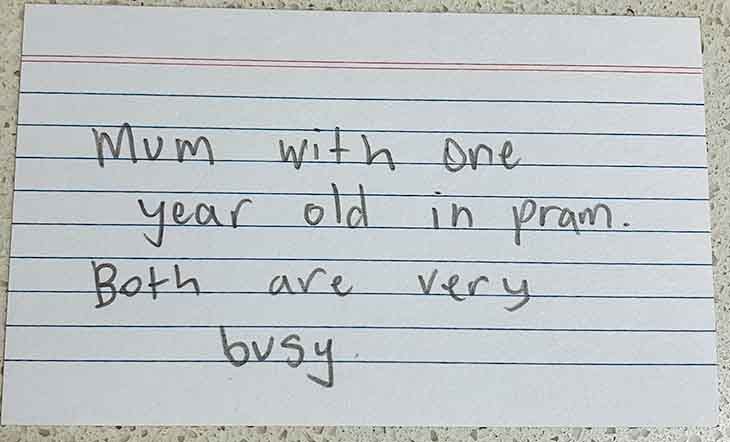 Mum with one
year old in pram.
Both are very
busy.